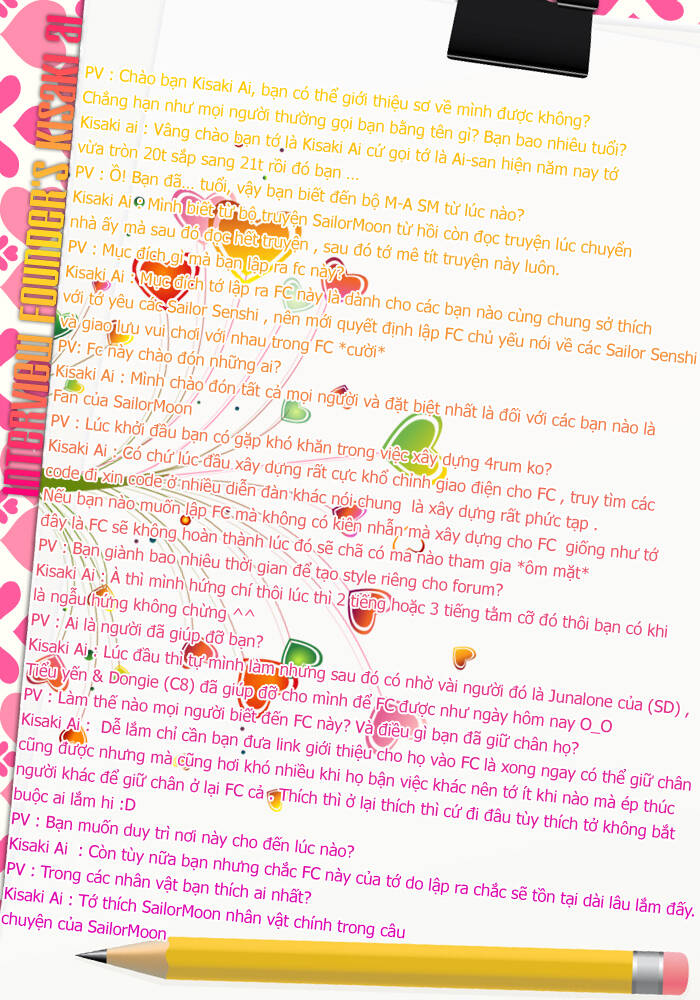 INTERVIEW FOUNDER'S KISAKI AI
PV : Chào bạn Kisaki Ai, bạn có thể giới thiệu sơ về mình được không?
Chẳng hạn như mọi người thường gọi bạn bằng tên gì? Bạn bao nhiêu tuổi?
Kisaki ai : Vâng chào bạn tớ là Kisaki Ai cứ gọi tớ là Ai-san hiện năm nay tớ
vừa tròn 20t sắp sang 21t rồi đó bạn ...
PV : Ồ! Bạn đã... tuổi, vậy bạn biết đến bộ M-A SM từ lúc nào?
Kisaki Ai : Mình biết từ bộ truyện SailorMoon từ hồi còn đọc truyện lúc chuyển
nhà ấy mà sau đó đọc hết truyện , sau đó tớ mê tít truyện này luôn.
PV : Mục đích gì mà bạn lập ra fc này?
Kisaki Ai : Mục đích tớ lập ra FC này là dành cho các bạn nào cùng chung sở thích
với tớ yêu các Sailor Senshi , nên mới quyết định lập FC chủ yếu nói về các Sailor Senshi
và giao lưu vui chơi với nhau trong FC *cười*
PV: Fc này chào đón những ai?
Kisaki Ai : Mình chào đón tất cả mọi người và đặt biệt nhất là đối với các bạn nào là
Fan của SailorMoon
PV : Lúc khởi đầu bạn có gặp khó khăn trong việc xây dựng 4rum ko?
Kisaki Ai : Có chứ lúc đầu xây dựng rất cực khổ chỉnh giao điện cho FC , truy tìm các
code đi xin code ở nhiều diễn đàn khác nói chung  là xây dựng rất phức tạp .
Nếu bạn nào muốn lập FC mà không có kiên nhẫn mà xây dựng cho FC  giống như tớ
đây là FC sẽ không hoàn thành lúc đó sẽ chã có ma nào tham gia *ôm mặt*
PV : Bạn giành bao nhiêu thời gian để tạo style riêng cho forum?
Kisaki Ai : À thì mình hứng chí thôi lúc thì 2 tiếng hoặc 3 tiếng tầm cỡ đó thôi bạn có khi
là ngẫu hứng không chừng ^^
PV : Ai là người đã giúp đỡ bạn?
Kisaki Ai : Lúc đầu thì tự mình làm nhưng sau đó có nhờ vài người đó là Junalone của (SD) ,
Tiểu yến & Dongie (C8) đã giúp đỡ cho mình để FC được như ngày hôm nay O_O
PV : Làm thế nào mọi người biết đến FC này? Và điều gì bạn đã giữ chân họ?
Kisaki Ai :  Dễ lắm chỉ cần bạn đưa link giới thiệu cho họ vào FC là xong ngay có thể giữ chân
cũng được nhưng mà cũng hơi khó nhiều khi họ bận việc khác nên tớ ít khi nào mà ép thúc
người khác để giữ chân ở lại FC cả . Thích thì ở lại thích thì cứ đi đâu tùy thích tớ không bắt
buộc ai lắm hi :D
PV : Bạn muốn duy trì nơi này cho đến lúc nào?
Kisaki Ai  : Còn tùy nữa bạn nhưng chắc FC này của tớ do lập ra chắc sẽ tồn tại dài lâu lắm đấy.
PV : Trong các nhân vật bạn thích ai nhất?
Kisaki Ai : Tớ thích SailorMoon nhân vật chính trong câu
chuyện của SailorMoon